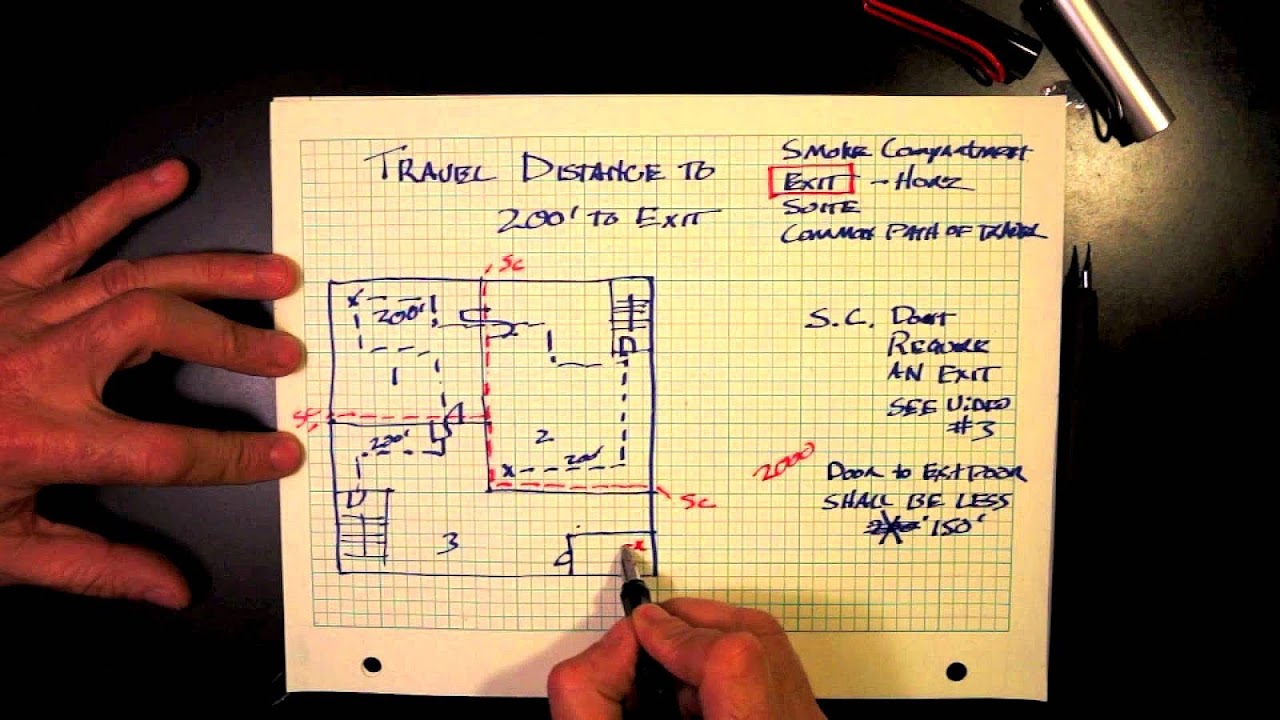 TRAVEL DISTANCE TO
200' TO EXIT
SMOKE COMPARTMENT
EXIT - HORZ
SUITE
COMMON PATH OF TRAVEL
SC
X
200'
1
200'
2
X
200'
SC
3
X
S.C. DON'T
REQUIRE
AN EXIT
SEE VIDEO
#3
2000
DOOR TO EXIT DOOR
SHALL BE LESS
150'